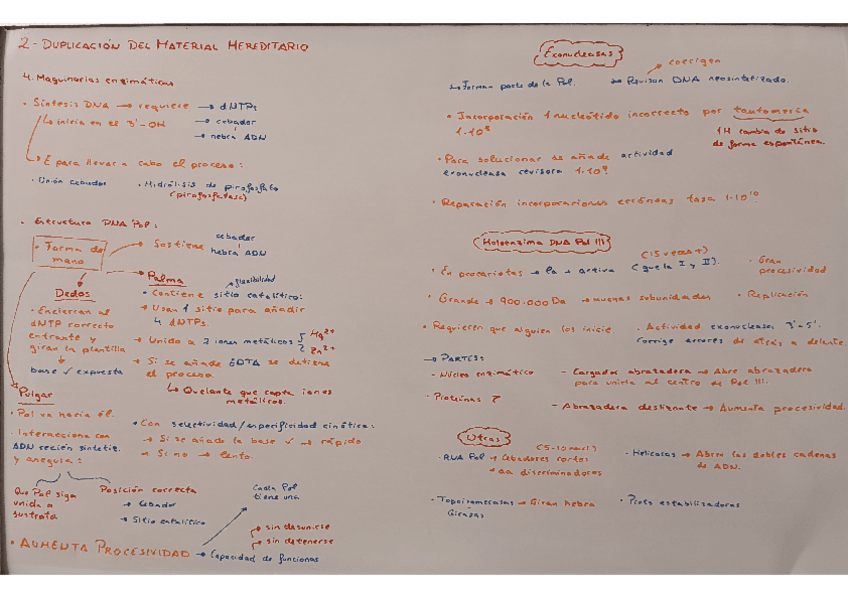 2.- DUPLICACIÓN DEL MATERIAL HEREDITARIO
4. Maquinarias enzimáticas
• Síntesis DNA → requiere → dNTPs
↳ inicia en el 3'-OH → cebador
→ hebra ADN
→ E para llevar a cabo el proceso:
• Unión cebador • Hidrólisis de pirofosfato
(pirofosfatasa)
• Estructura DNA Pol:
• Forma de mano → Sostiene cebador
hebra ADN
Dedos
• Encierran al
dNTP correcto
entrante y
giran la plantilla
↓
base ✓ expuesta
Palma → flexibilidad
• Contiene sitio catalítico:
→ Usan 1 sitio para añadir
4 dNTPs.
→ Unido a 2 iones metálicos Mg2+
Zn2+
→ Si se añade EDTA se detiene
el proceso
↳ Quelante que capta iones
metálicos.
Pulgar
• Pol va hacia él.
• Interacciona con
ADN recién sintetiz.
y asegura:
• Con selectividad/especificidad cinética:
→ Si se añade la base ✓ → rápido
→ Si no → lento.
Que Pol siga
unida a
sustrato
Posición correcta
→ Cebador
→ Sitio catalítico
Cada Pol
tiene una
• AUMENTA PROCESIVIDAD → Capacidad de funcionar
→ sin desunirse
→ sin detenerse
Exonucleasas
→ Forman parte de la Pol. → Revisan DNA neosintetizado.
corrigen
• Incorporación 1 nucleótido incorrecto por tautomería
1H cambia de sitio
de forma espontánea.
• Para solucionar se añade actividad
exonucleasa revisora
• Reparación incorporaciones erróneas tasa 1·10
Holoenzima DNA Pol III
• En procariotas → la + activa (que la I y II). (15 veces +)
• Gran
procesividad
• Grande → 900.000 Da → muchas subunidades • Replicación
• Requieren que alguien los inicie. • Actividad exonucleasa 3'-5'.
Corrige errores de atrás a delante.
→ PARTES:
- Núcleo enzimático - Cargador abrazadera → Abre abrazadera
para unirla al centro de Pol III.
- Proteínas τ
- Abrazadera deslizante → Aumenta procesividad.
Otras
• RNA Pol → Cebadores cortos
discriminadoras
• Helicasas → Abren las dobles cadenas
de ADN.
• Topoisomerasas → Giran hebra
Girasas
• Prots estabilizadoras